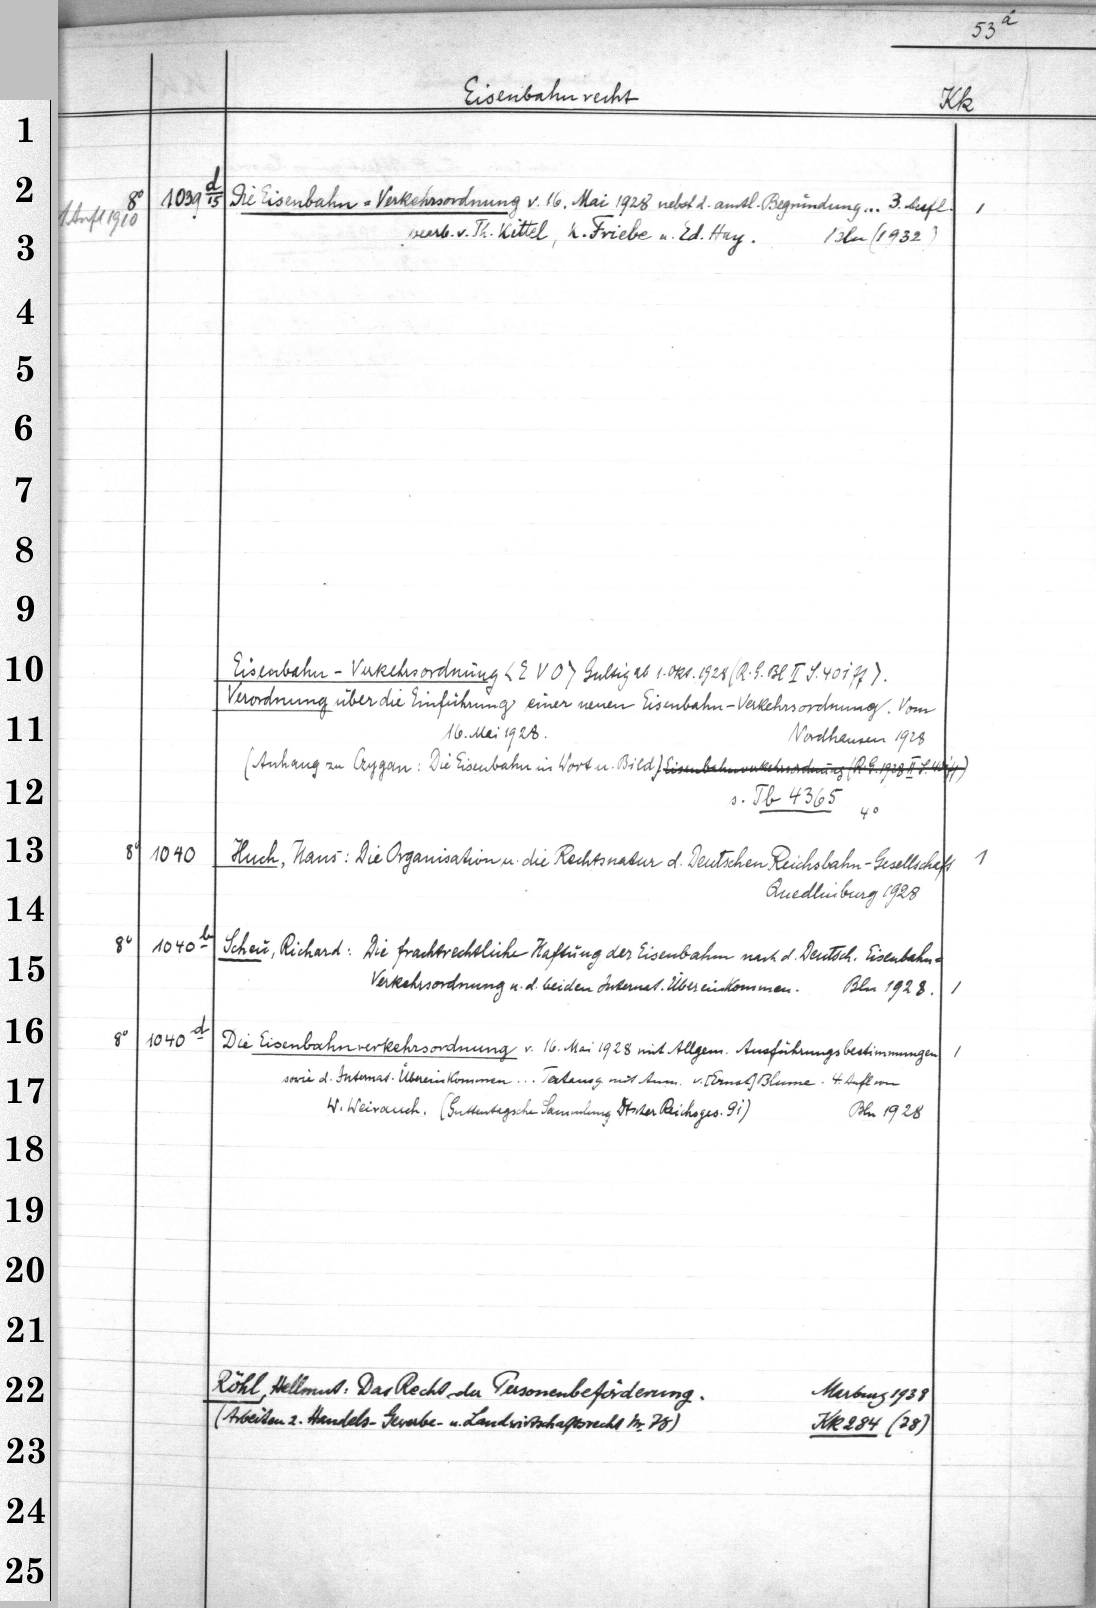 53 a
Eisenbahnrecht Kk
1
2 8° 1039 d/15 Die Eisenbahn-Verkehrsordnung v. 16. Mai 1928 nebst d. amtl. Begründung... 3. Aufl. 1
1. Aufl 1910
3 bearb. v. Th. Kittel, K. Friebe u. Ed. Hay. Bln (1932)
4
5
6
7
8
9
10 Eisenbahn-Verkehrsordnung <EVO> Gültig ab 1. Okt. 1928 (R.G.Bl II S. 401 ff).
Verordnung über die Einführung einer neuen Eisenbahn-Verkehrsordnung. Vom
11 16. Mai 1928. Nordhausen 1928
(Anhang zu Czygan: Die Eisenbahn in Wort u. Bild) Eisenbahnverkehrsordnung (R.G. 1928 II S. 401 ff)
12 s. Tb 4365 4°
13 8° 1040 Huch, Hans: Die Organisation u. die Rechtsnatur d. Deutschen Reichsbahn-Gesellschaft 1
14 Quedlinburg 1928
8° 1040 b Scheu, Richard: Die frachtrechtliche Haftung der Eisenbahn nach d. Deutsch. Eisenbahn-
15 Verkehrsordnung u. d. beiden Internat. Übereinkommen. Bln 1928. 1
16 8° 1040 d Die Eisenbahnverkehrsordnung v. 16. Mai 1928 mit Allgem. Ausführungsbestimmungen 1
sowie d. Internat. Übereinkommen ... Textausg mit Anm. v. [Ernst] Blume. 4. Aufl von
17 W. Weirauch. (Guttentagsche Sammlung Dtscher Reichsges. 91) Bln 1928
18
19
20
21
22 Röhl, Hellmut: Das Recht der Personenbeförderung. Marburg 1938
(Arbeiten z. Handels- Gewerbe- u. Landwirtschaftsrecht Nr. 78) Kk 284 (78)
23
24
25